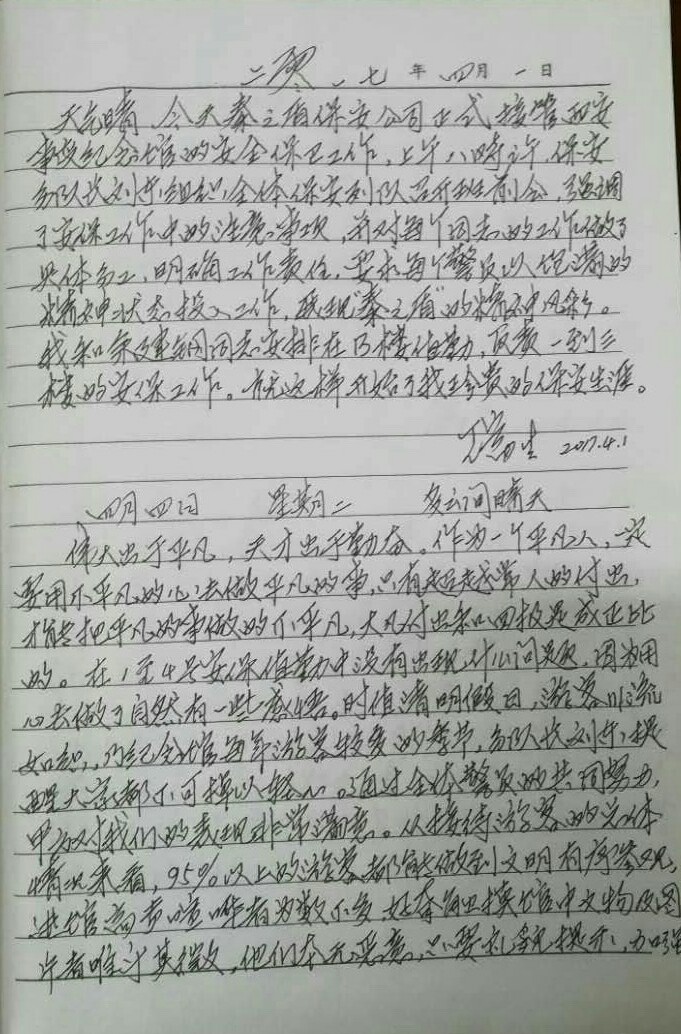 二零一七年四月一日
天气晴，今天秦之盾保安公司正式接管西安
事变纪念馆的安全保卫工作，上午八时许，保安
分队长刘乐组织全体保安列队召开班前会，强调
了安保工作中的注意事项，并对每个同志的工作做了
具体分工，明确工作责任，要求每个警员以饱满的
精神状态投入工作，展现"秦之盾"的精神风彩。
我和余建钢同志安排在B楼值勤，负责一到三
楼的安保工作。就这样开始了我珍贵的保安生涯。
2017.4.1
四月四日 星期二 多云间晴天
伟大出于平凡，天才出于勤奋。作为一个平凡人，一定
要用不平凡的心去做平凡的事，只有超越常人的付出，
才能把平凡的事做的不平凡，大凡付出和回报是成正比
的。在1至4号安保值勤中没有出现什么问题，因为用
心去做了自然有一些感悟。时值清明假日，游客川流
如织，乃纪念馆每年游客较多的季节，分队长刘乐提
醒大家都不可掉以轻心。通过全体警员的共同努力，
甲方对我们的表现非常满意。从接待游客的总体
情况来看，95%以上的游客都能做到文明有序参观，
进馆高声喧哗者为数不多 好奇触摸馆中文物及图
片者唯计其微，他们本无恶意，只要礼貌提示，加强